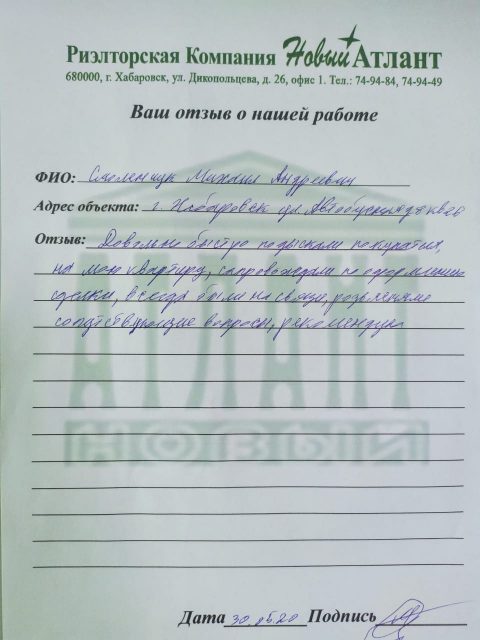 Риэлторская Компания Новый Атлант
680000, г. Хабаровск, ул. Дикопольцева, д. 26, офис 1. Тел.: 74-94-84, 74-94-49
Ваш отзыв о нашей работе
ФИО: Михаил Андреевич
Адрес объекта: г. Хабаровск ул Автобусная д 8 кв
Отзыв: Довольно быстро подыскали покупателя,
на мою квартиру, сопровождали по оформлению
сделки, всегда были на связи, разъясняли
сопутствующие вопросы, рекомендую
АТЛАНТ
НОВЫЙ
Дата 30.05.20 Подпись